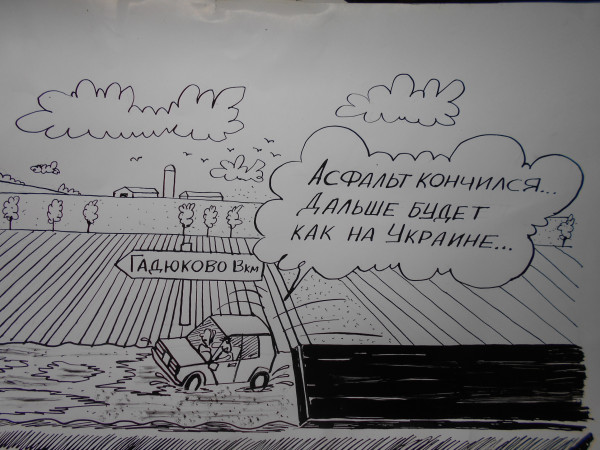 Асфальт кончился...
Дальше будет
как на Украине...
Гадюково 8км